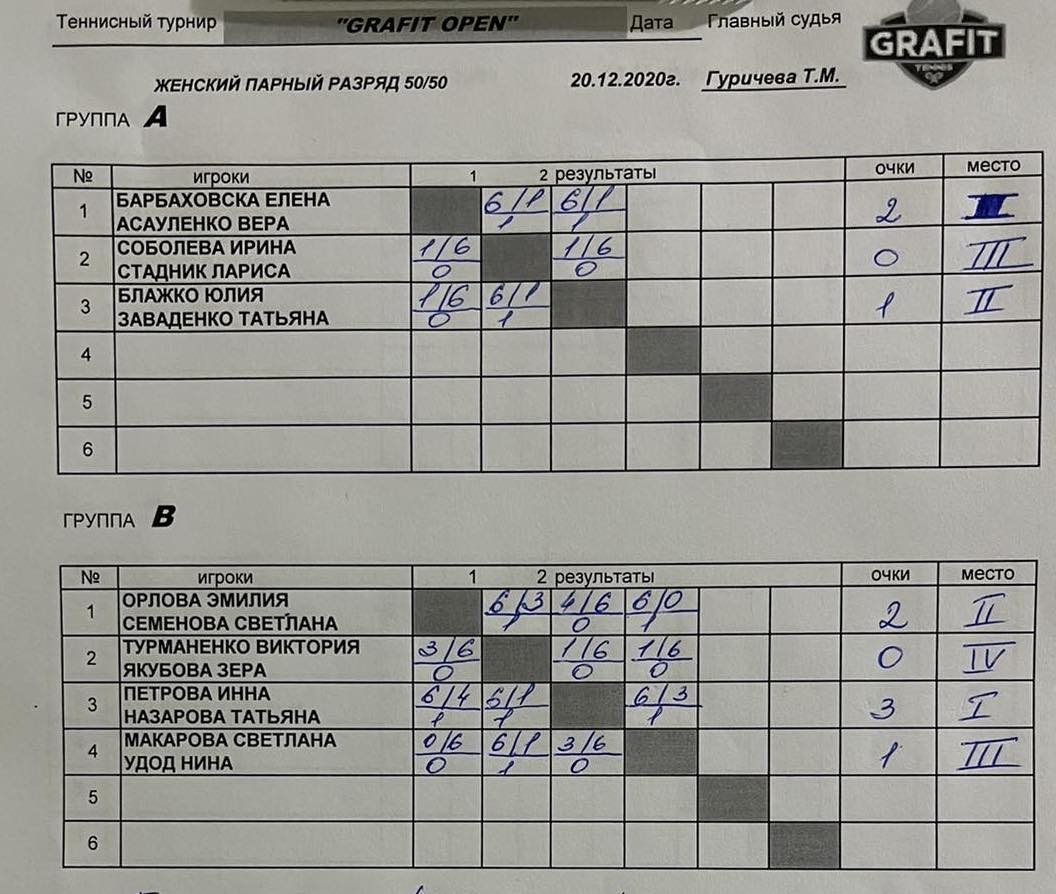 Теннисный турнир "GRAFIT OPEN" Дата Главный судья
GRAFIT
TENNIS
ЖЕНСКИЙ ПАРНЫЙ РАЗРЯД 50/50 20.12.2020г. Гуричева Т.М.
ГРУППА A
№ игроки 1 2 результаты очки место
1 БАРБАХОВСКА ЕЛЕНА 6/1 6/1
АСАУЛЕНКО ВЕРА 1 1 2
2 СОБОЛЕВА ИРИНА 1/6 1/6
СТАДНИК ЛАРИСА 0 0 0 III
3 БЛАЖКО ЮЛИЯ 1/6 6/1
ЗАВАДЕНКО ТАТЬЯНА 0 1 1 II
4
5
6
ГРУППА B
№ игроки 1 2 результаты очки место
1 ОРЛОВА ЭМИЛИЯ 6/3 4/6 6/0
СЕМЕНОВА СВЕТЛАНА 1 0 1 2 II
2 ТУРМАНЕНКО ВИКТОРИЯ 3/6 1/6 1/6
ЯКУБОВА ЗЕРА 0 0 0 0 IV
3 ПЕТРОВА ИННА 6/4 6/1 6/3
НАЗАРОВА ТАТЬЯНА 1 1 1 3 I
4 МАКАРОВА СВЕТЛАНА 0/6 6/1 3/6
УДОД НИНА 0 1 0 1 III
5
6